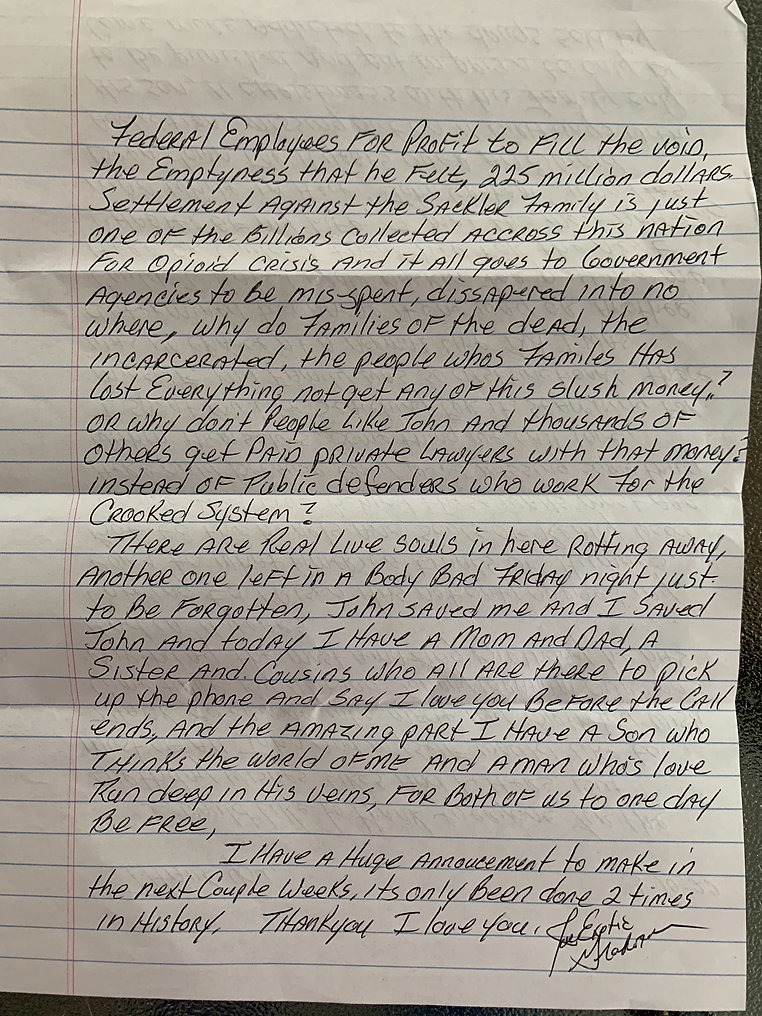 Federal Employees For Profit to Fill the void,
the Emptyness that he Felt, 225 million dollars
Settlement Against the Sackler Family is just
one of the Billions Collected Accross this nation
For Opioid Crisis And it All goes to Government
Agencies to be mis-spent, dissapered into no
where, why do Families of the dead, the
incarcerated, the people whos Familes Has
lost Everything not get Any of this slush money?
Or why don't People Like John And thousands of
others get Paid private Lawyers with that money?
instead of Public defenders who work For the
Crooked System?
There are Real Live souls in here Rotting Away,
Another one left in A Body Bad Friday night just
to Be Forgotten, John saved me And I Saved
John And today I Have A Mom And Dad, A
Sister And Cousins who All are there to pick
up the phone And Say I love you Before the Call
ends, And the Amazing part I Have A Son who
Thinks the world of me And A man who's love
Run deep in His veins, For Both of us to one day
Be Free,
I Have A Huge Annoucement to make in
the next Couple Weeks, its only Been done 2 times
in History, Thankyou I love you, Joe Exotic